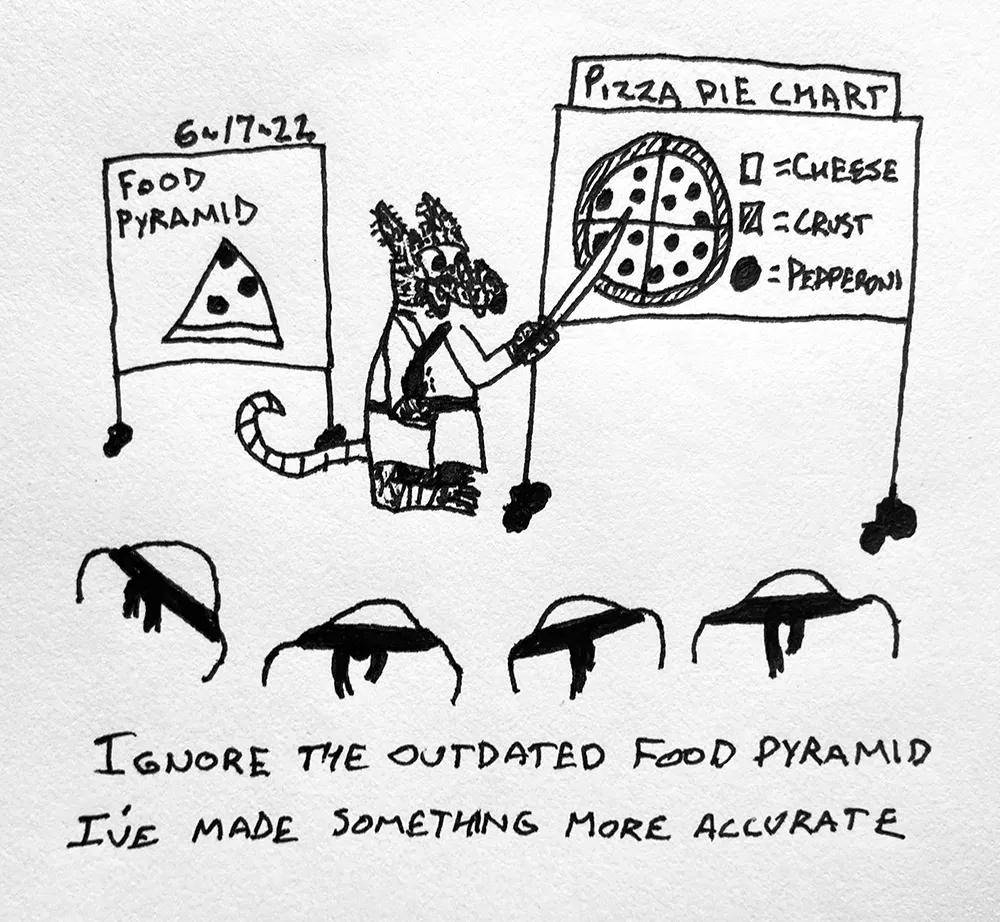 6-17-22
FOOD
PYRAMID
PIZZA PIE CHART
=CHEESE
=CRUST
=PEPPERONI
IGNORE THE OUTDATED FOOD PYRAMID
I'VE MADE SOMETHING MORE ACCURATE